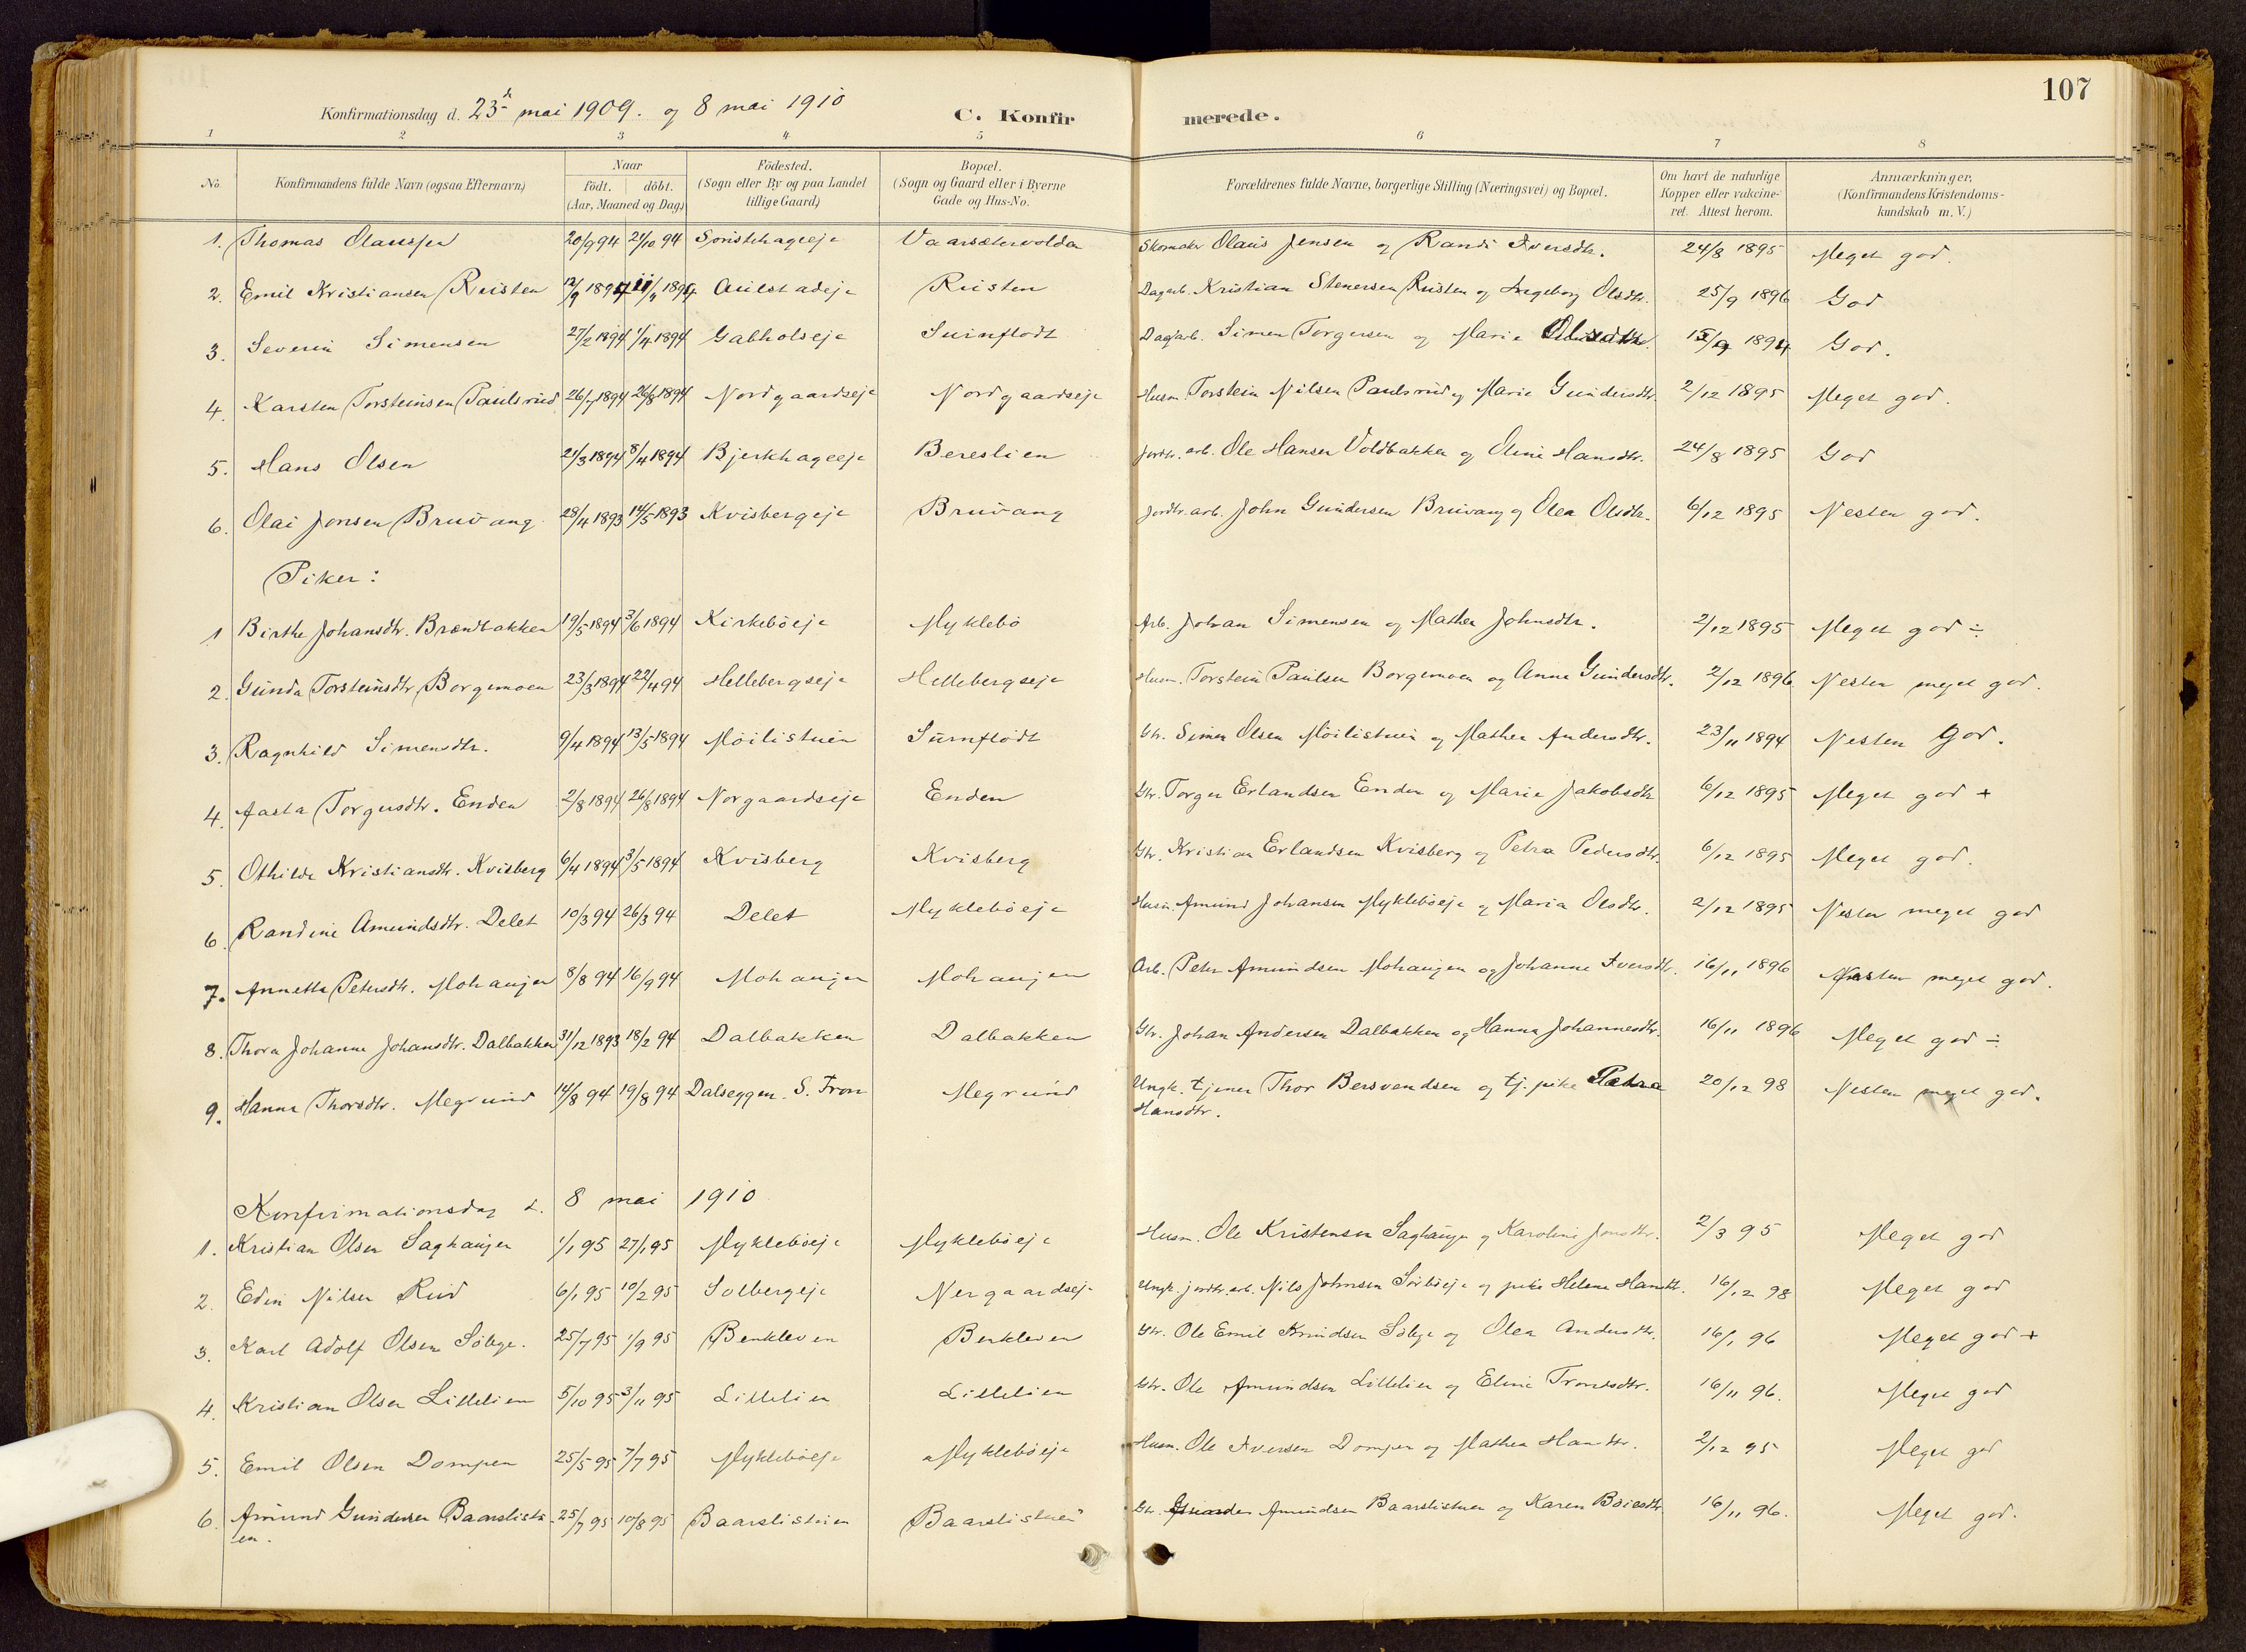 107
Konfirmationsdag d. 23de mai 1909. og 8 mai 1910 C. Konfirmerede.
1 2 3 4 5 6 7 8
No. Konfirmandens fulde Navn (ogsaa Efternavn) Naar født. døbt. (Aar, Maaned og Dag) Födested. (Sogn eller By og paa Landet tillige Gaard) Bopæl. (Sogn og Gaard eller i Byerne Gade og Hus-No. Forældrenes fulde Navne, borgerlige Stilling (Næringsvei) og Bopæl. Om havt de naturlige Kopper eller vakcineret. Attest herom. Anmærkninger, (Konfirmandens Kristendomskundskab m. V.)
1. Thomas Olaussen 20/9 94 21/10 94 Vaarsætervolden Skomaker Olaus Jensen og Randi Iversdtr. 24/8 1895 Meget god.
2. Emil Kristiansen Rusten 12/9 1894 1894 Aulestadeje Rusten Dagarb. Kristian Stenersen Rusten og Ingeborg Olsdtr. 25/9 1896 God
3. Severin Simensen 27/2 1894 1/4 1894 Gabholseje Surnflødt Dagarb. Simen Torgersen og Marie 1894 God.
4. Karsten Torsteinsen Paulsrud 26/7 1894 26/8 1894 Nordgaardseje Nordgaardseje Husm. Torstein Nilsen Paulsrud og Marie Gundersdtr. 2/12 1895 Meget god.
5. Hans Olsen 21/3 1894 8/4 1894 Bjerkhageeje Bereslien Jordbr. arb. Ole Hansen Voldbakken og Oline Hansdtr. 24/8 1895 God
6. Olai Jonsen Bruvang 28/4 1893 14/5 1893 Kvisbergeje Bruvang Jordbr. arb. John Gundersen Bruvang og Olea Olsdtr. 6/12 1895 Nesten god.
Piker:
1 Birthe Johansdtr. Brændbakken 19/5 1894 3/6 1894 Kirkebøeje Myklebø Arb. Johan Simensen og Mathea Johnsdtr. 2/12 1895 Meget god ÷
2. Gunda Torsteinsdtr. Borgemoen 23/3 1894 22/4 94 Hellebergseje Hellebergseje Husm. Torstein Paulsen Borgemoen og Anne Gundersdtr. 2/12 1896 Nesten meget god.
3. Ragnhild Simensdtr. 9/4 1894 13/5 1894 Moilistuen Surnflødt Gbr. Simen Olsen Moilistuen og Mathea Andersdtr. 23/11 1894 Nesten god.
4. Aasta Torgersdtr. Enden 2/8 1894 26/8 1894 Norgaardseje Enden Gbr. Torger Erlandsen Enden og Marie Jakobsdtr 6/12 1895 Meget god +
5. Othilde Kristiansdtr. Kvisberg 6/4 1894 3/5 1894 Kvisberg Kvisberg Gbr. Kristian Erlandsen Kvisberg og Petra Pedersdtr. 6/12 1895 Meget god.
6. Randine Amundsdtr. Delet 10/3 94 26/3 94 Delet Myklebøeje Husm. Amund Johansen Myklebøeje og Maria Olsdtr. 2/12 1895 Nesten meget god
7. Annette Petersdtr. Mohaugen 8/8 94 16/9 94 Mohaugen Mohaugen Arb. Peter Amundsen Mohaugen og Johanne Iversdtr. 16/11 1896 Nesten meget god.
8. Thora Johanne Johansdtr. Dalbakken 31/12 1893 18/2 94 Dalbakken Dalbakken Gbr. Johan Andersen Dalbakken og Hanna Johannesdtr. 16/11 1896 Meget god ÷
9. Hanna Thorsdtr. Megrund 14/8 94 19/8 94 Dalseggen S. Fron Megrund Ungk. tjener Thor Bersvendsen og tj. pike Petra Hansdtr. 20/12 98 Nesten meget god.
Konfirmationsdag d. 8 mai 1910
1. Kristian Olsen Saghaugen 1/1 95 27/1 95 Myklebøeje Myklebøeje Husm. Ole Kristensen Saghaugen og Karoline Jonsdtr. 2/3 95 Meget god
2. Edin Nilsen Rud 6/1 95 10/2 95 Solbergeje Nergaardseje Ungk. jordbr. arb. Nils Johnsen Sørbøeje og pike Helene Hansdtr. 16/12 98 Meget god
3. Karl Adolf Olsen Sølvge. 25/7 95 1/9 95 Benkleven Benkleven Gbr. Ole Emil Knudsen og Olea Andersdtr. 16/1 96 Meget god +
4. Kristian Olsen Lillelien 5/10 95 3/11 95 Lillelien Lillelien Gbr. Ole Amundsen Lillelien og Eline Trondsdtr. 16/11 96. Meget god
5. Emil Olsen Dompen 25/5 95 7/7 95 Myklebøeje Myklebøeje Husm. Ole Iversen Dompen og Mathea Hansdtr. 2/12 95 Meget god
6. Amund Gundersen Baarslistuen. 25/7 95 10/8 95 Baarslistuen Baarslistuen Gbr. Amundsen Baarslistuen og Karen Boiesdtr. 16/11 96. Meget god.